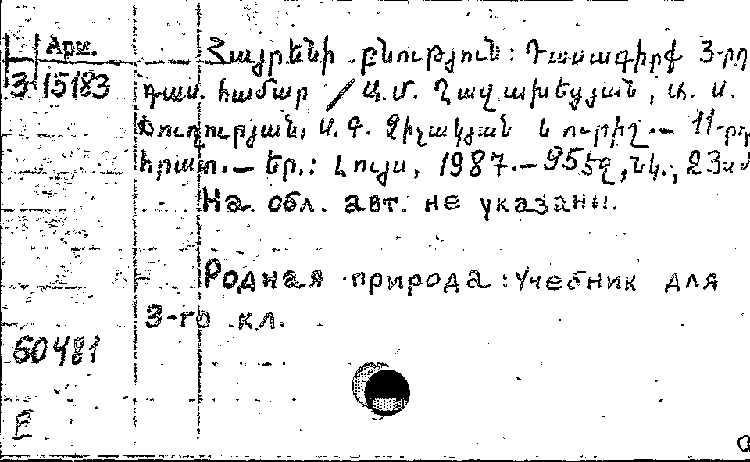 Арм.
3-15183
Հայրենի բնություն: Դասագիրք 3-րդ
դաս. համար / Ա.Մ. Ղազախեցյան, Ա. Ս.
Մ. Գ. Զիլակյան և ուրիշ.— 11-րդ
հրատ.— Եր.: Լույս, 1987.— 95 էջ, նկ., 23սմ
На обл. авт. не указаны.
Родная природа: Учебник для
3-го кл.
60481
E